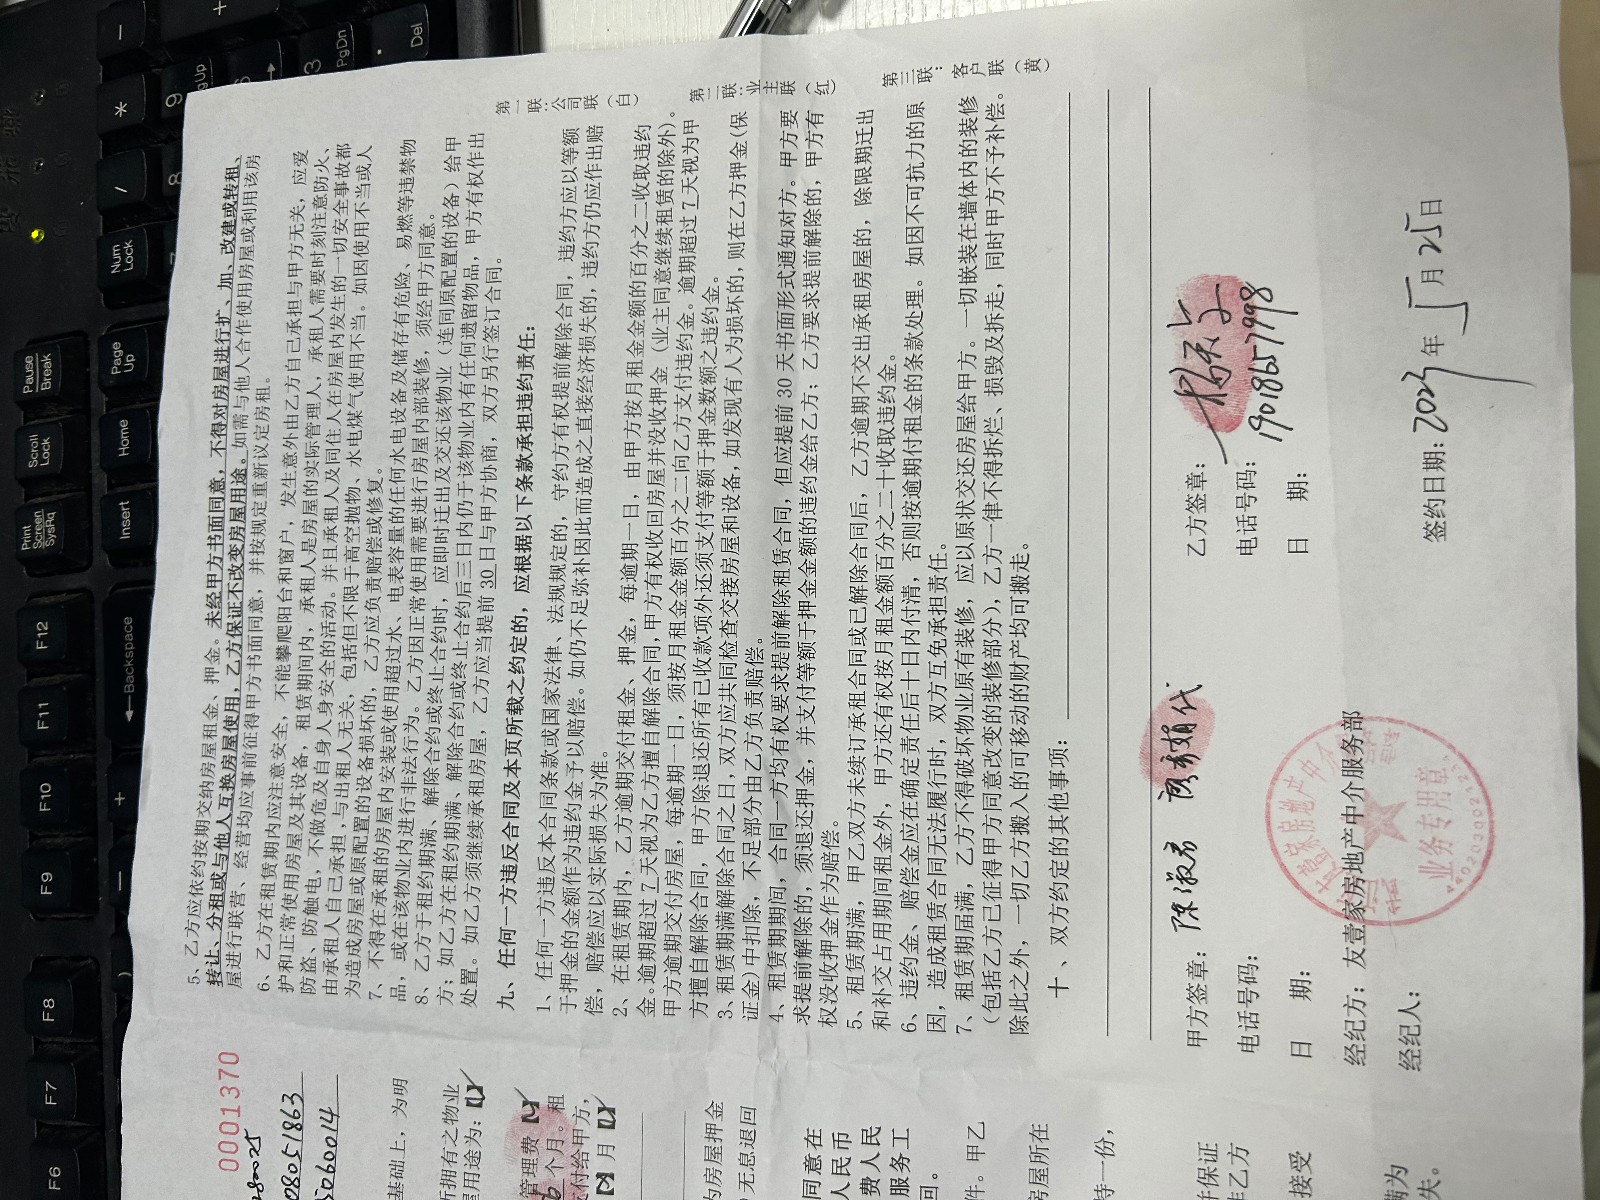 5、乙方应依约按期交纳房屋租金、押金。未经甲方书面同意，不得对房屋进行扩、加、改建或转租、
转让、分租或与他人互换房屋使用，乙方保证不改变房屋用途。如需与他人合作使用房屋或利用该房
屋进行联营、经营均应事前征得甲方书面同意，并按规定重新议定房租。
6、乙方在租赁期内应注意安全，不能攀爬阳台和窗户，发生意外由乙方自己承担与甲方无关，应爱
护和正常使用房屋及其设备，租赁期间内，承租人是房屋的实际管理人，承租人需要时刻注意防火、
防盗、防触电，不做危及自身人身安全的活动。并且承租人及同住人在房屋内发生的一切安全事故都
由承租人自己承担，与出租人无关，包括但不限于高空抛物、水电煤气使用不当。如因使用不当或人
为造成房屋或原配置的设备损坏的，乙方应负责赔偿或修复。
7、不得在承租的房屋内安装或使用超过水、电表容量的任何水电设备及储存有危险、易燃等违禁物
品，或在该物业内进行非法行为。乙方因正常使用需要进行房屋内部装修，须经甲方同意。
8、乙方于租约期满、解除合约或终止合约时，应即时迁出及交还该物业（连同原配置的设备）给甲
方；如乙方在租约期满、解除合约或终止合约后三日内仍于该物业内有任何遗留物品，甲方有权作出
处置。如乙方须继续承租房屋，乙方应当提前30日与甲方协商，双方另行签订合同。
九、任何一方违反合同及本页所载之约定的，应根据以下条款承担违约责任：
1、任何一方违反本合同条款或国家法律、法规规定的，守约方有权提前解除合同，违约方应以等额
于押金的金额作为违约金予以赔偿。如仍不足弥补因此而造成之直接经济损失的，违约方仍应作出赔
偿，赔偿应以实际损失为准。
2、在租赁期内，乙方逾期交付租金、押金，每逾期一日，由甲方按月租金金额的百分之二收取违约
金。逾期超过7天视为乙方擅自解除合同，甲方有权收回房屋并没收押金（业主同意继续租赁的除外）。
甲方逾期交付房屋，每逾期一日，须按月租金金额百分之二向乙方支付违约金。逾期超过7天视为甲
方擅自解除合同，甲方除退还所有已收款项外还须支付等额于押金数额之违约金。
3、租赁期满解除合同之日，双方应共同检查交接房屋和设备，如发现有人为损坏的，则在乙方押金(保
证金)中扣除，不足部分由乙方负责赔偿。
4、租赁期期间，合同一方均有权要求提前解除租赁合同，但应提前30天书面形式通知对方。甲方要
求提前解除的，须退还押金，并支付等额于押金金额的违约金给乙方；乙方要求提前解除的，甲方有
权没收押金作为赔偿。
5、租赁期满，甲乙双方未续订承租合同或已解除合同后，乙方逾期不交出承租房屋的，除限期迁出
和补交占用期间租金外，甲方还有权按月租金额百分之二十收取违约金。
6、违约金、赔偿金应在确定责任后十日内付清，否则按逾期付租金的条款处理。如因不可抗力的原
因，造成租赁合同无法履行时，双方互免承担责任。
7、租赁期届满，乙方不得破坏物业原有装修，应以原状交还房屋给甲方。一切嵌装在墙体内的装修
（包括乙方已征得甲方同意改变的装修部分），乙方一律不得拆烂、损毁及拆走，同时甲方不予补偿。
除此之外，一切乙方搬入的可移动的财产均可搬走。
十、双方约定的其他事项：
甲方签章：陈淑君 代
乙方签章：
电话号码：
电话号码：19018657998
日 期：
日 期：
经纪方：友壹家房地产中介服务部
经纪人：
签约日期：2023年5月25日
业务专用章
第一联：公司联（白）
第二联：业主联（红）
第三联：客户联（黄）
0001370
08051863
5060014
基础上，为明
所拥有之物业
屋用途为：【√】
管理费【√】
6个月。租
支付给甲方，
月【√】
为房屋押金
）无息退回
同意在
人民币
费人民
服务工
回。
件。甲乙
房屋所在
持一份，
并保证
接受
满为
失。
Pause Break
Scroll Lock
Print Screen SysRq
Page Up
Home
Insert
Num Lock
/
*
9
PgUp
8
3
PgDn
Del
Backspace
F12
F11
F10
F9
F8
F7
F6